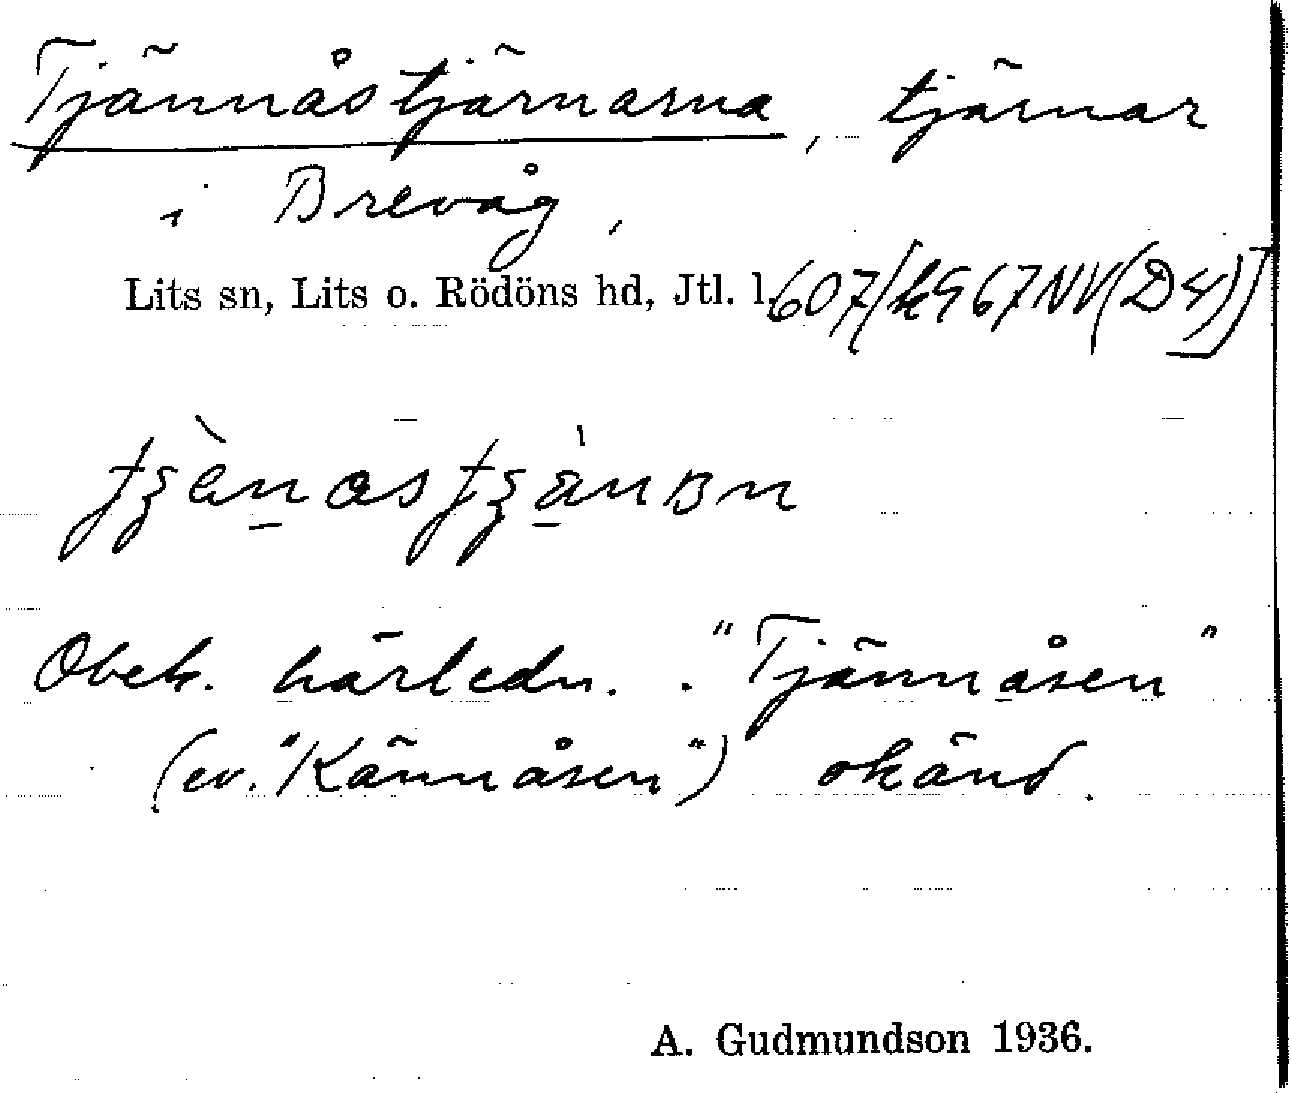 Tjännåstjärnarna, tjärnar
i Brevåg,
Lits sn, Lits o. Rödöns hd, Jtl. l.
Obek. härledn. . "Tjännåsen"
(ev. "Kännåsen") okänd.
A. Gudmundson 1936.